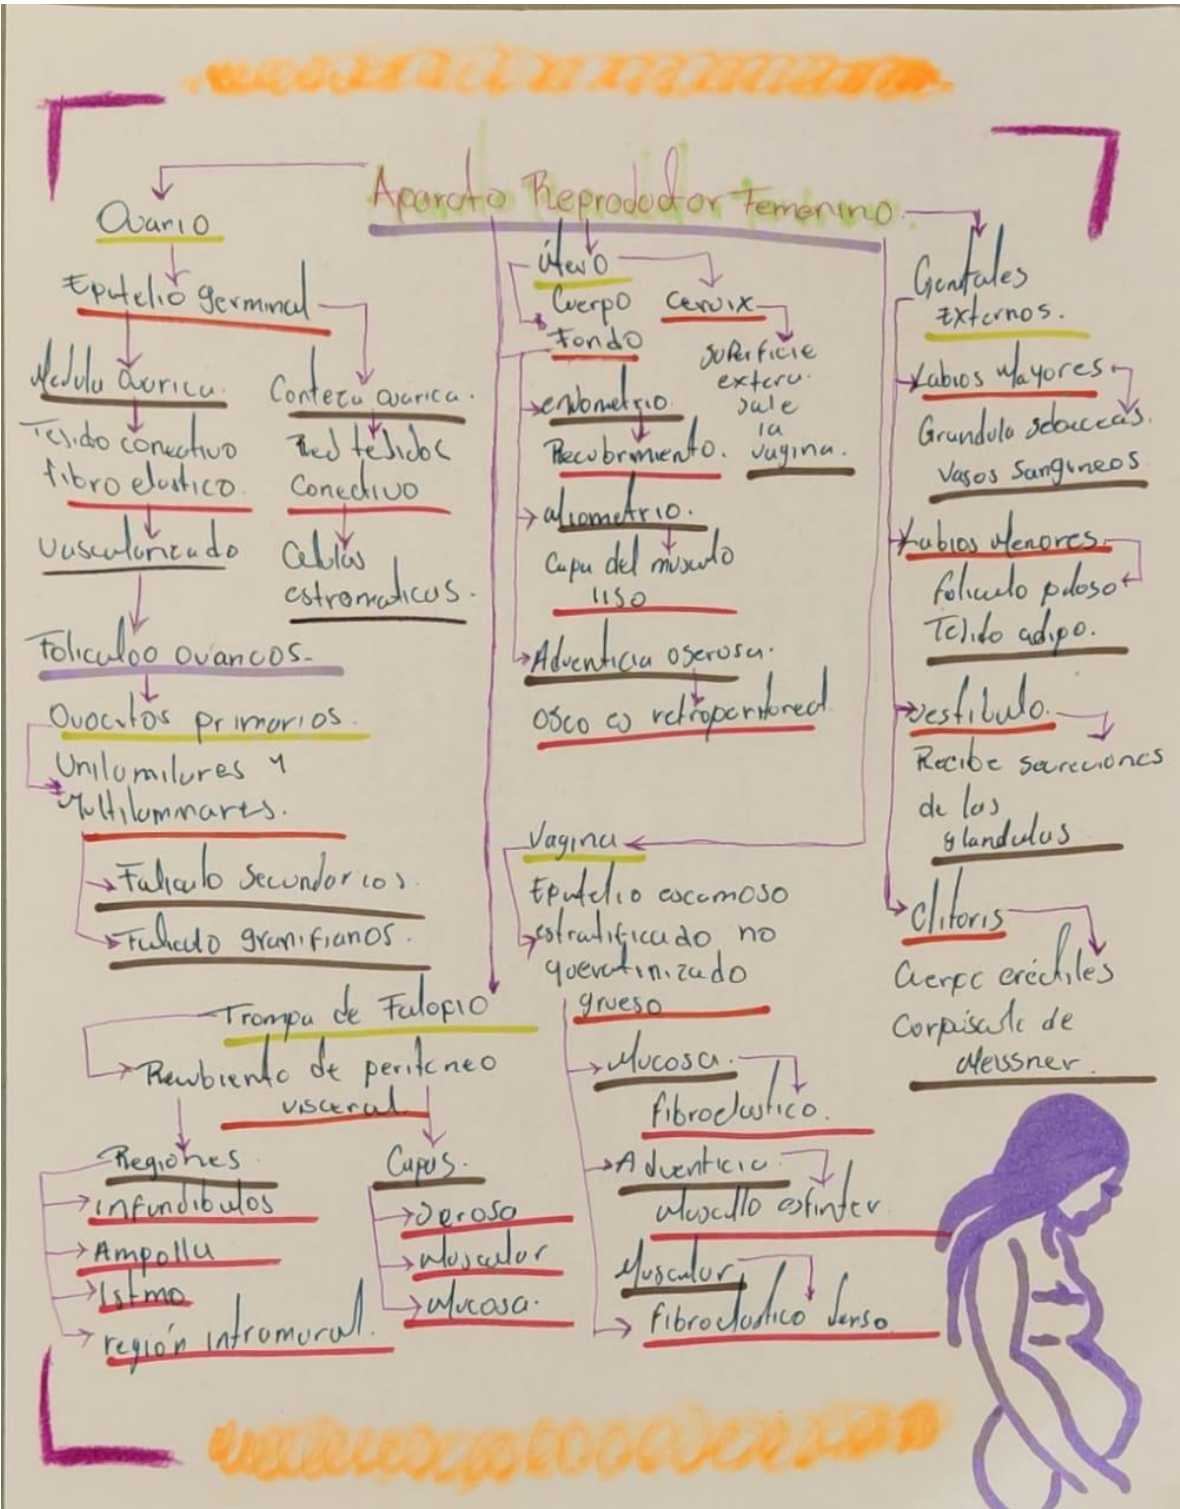 Aparato Reproductor Femenino.
Ovario
Epitelio germinal
Medula Ovarica.
Tejido conectivo
fibro elastico.
Vascularizado
Corteza ovarica.
Red tejidos
Conectivo
Celulas
estromaticas.
Foliculoo ovaricos.
Ovocitos primarios.
Unilamilares y
Multilaminares.
Foliculo Secundarios.
Foliculo granifianos.
Trompa de Falopio
Recubiento de peritoneo
visceral
Regiones.
infundibulos
Ampolla
Istmo
región intramural.
Capas.
Serosa
Muscular
Mucosa.
Útero
Cuerpo
Fondo
endometrio.
Recubrimiento.
Capa del músculo
liso
Adventicia oserosa.
Cervix
superficie
sale
la
vagina.
Vagina
Epitelio escamoso
estratificado no
queratinizado
grueso
Mucosa.
fibroelastico.
Adventicia.
Muscular
fibroelastico denso.
Genitales
Externos.
Labios Mayores
Grandula sebaceas.
Vasos Sangineos
Labios Menores.
foliculo piloso
Tejido adipo.
Vestibulo.
Recibe secreciones
de las
glandulas
Clitoris
eréctiles
de
Meissner.